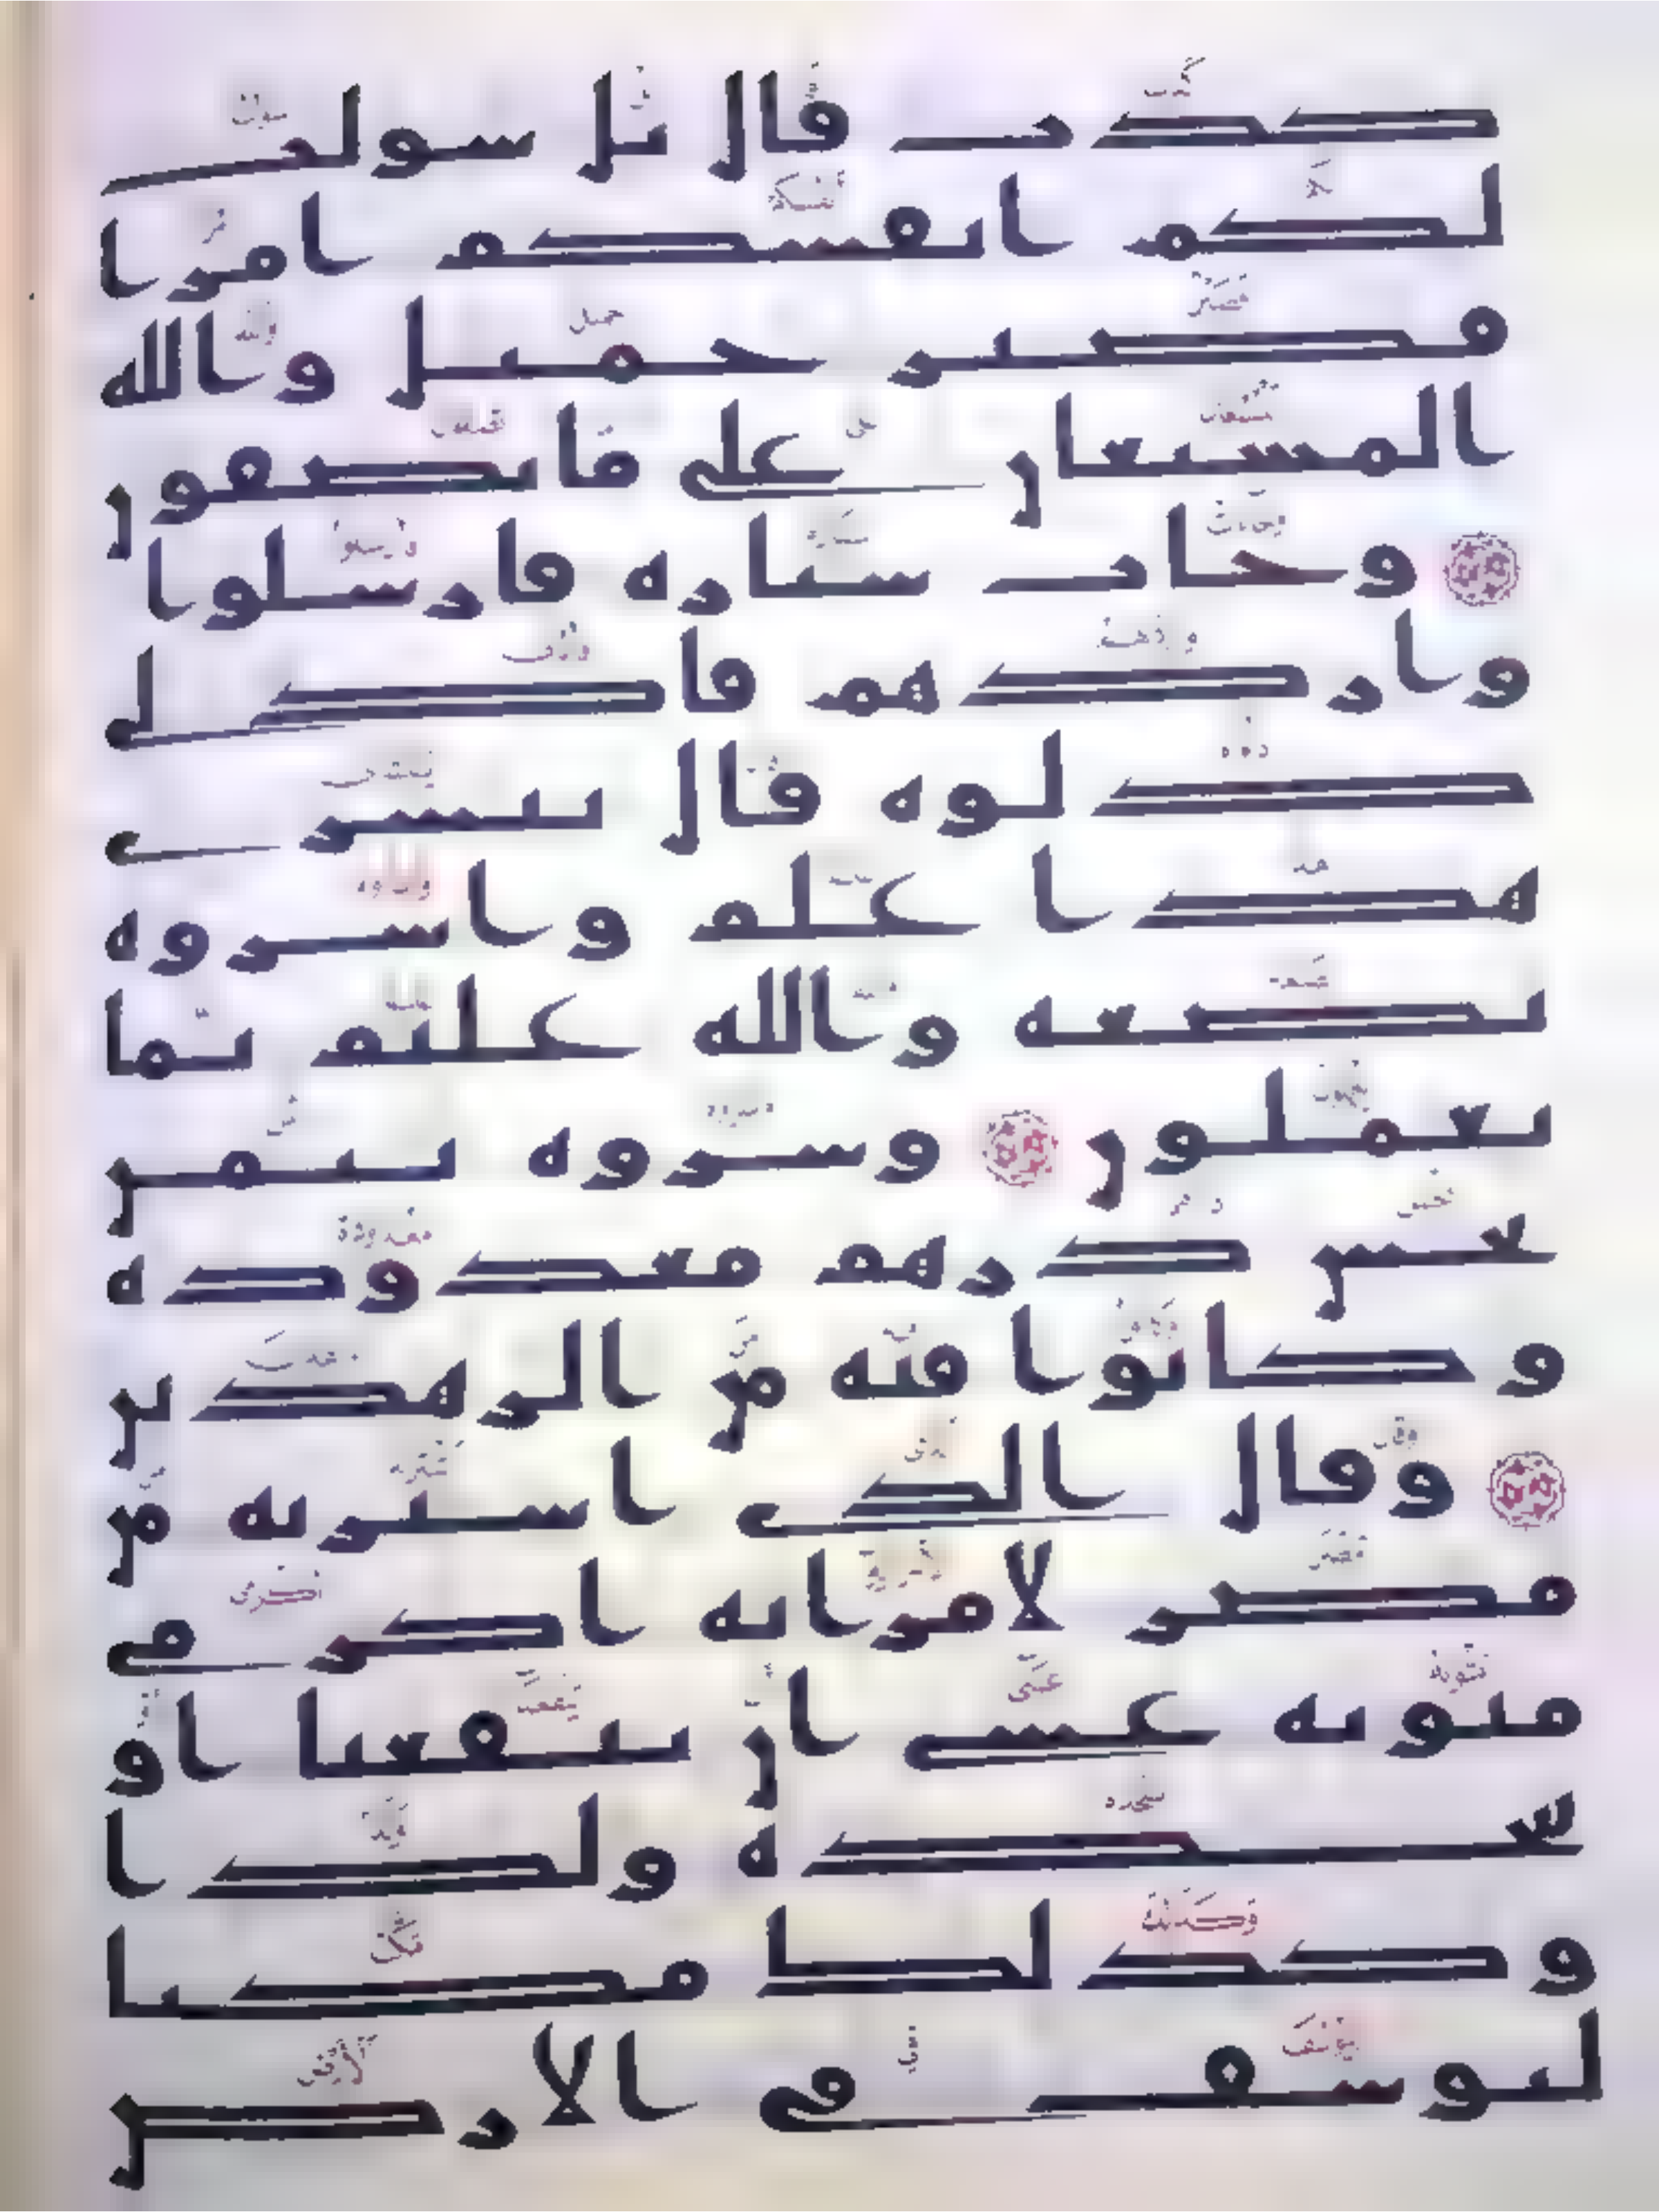 كدب قال بل سولت
لكم انفسكم امرا
فصبر جميل والله
المستعان على ما تصفون
وجات سياره فارسلوا
واردهم فادلى
دلوه قال يبشرى
هدا غلم واسروه
بضعه والله عليم بما
يعملون وشروه بثمن
بخس درهم معدوده
وكانوا فيه من الزهدين
وقال الدى اشتريه من
مصر لامراته اكرمى
مثويه عسى ان ينفعنا او
نتخده ولدا
وكدلك مكنا
ليوسف فى الارض